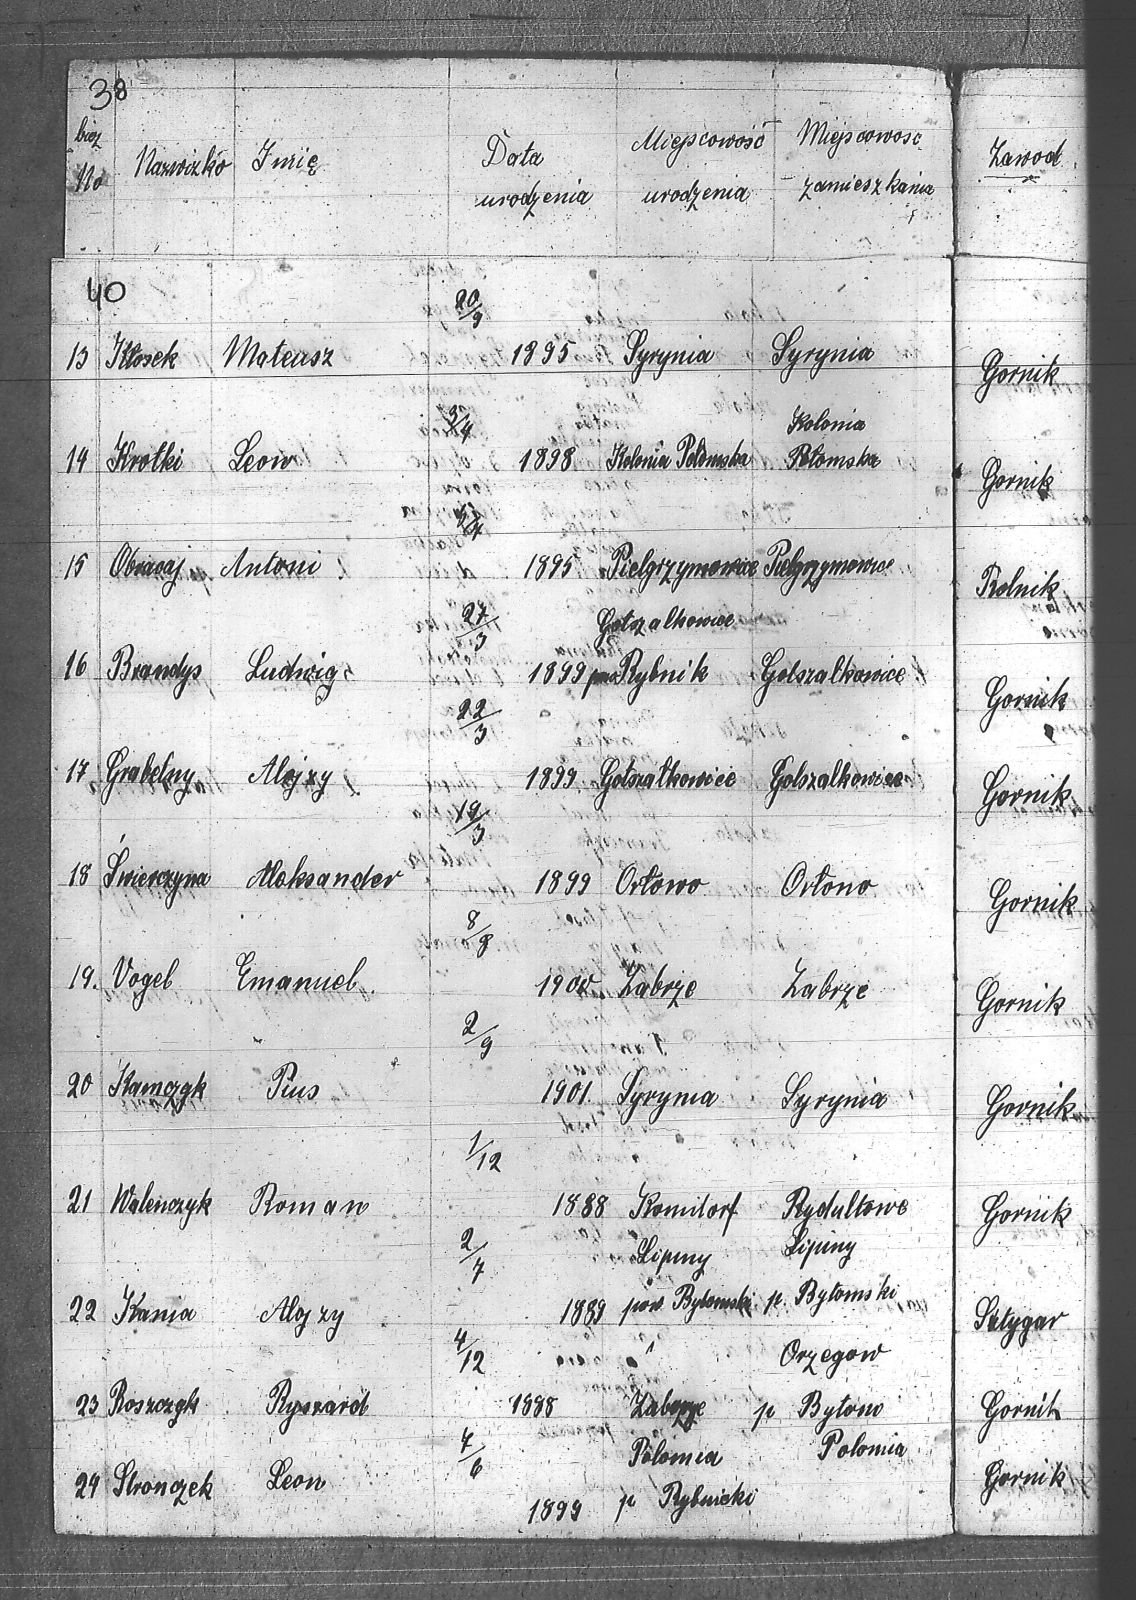 38
bież No Nazwizko Imię Data urodzenia Miejscowość urodzenia Miejscowość zamieszkania Zawod
40
20/9
13 Kłosek Mateusz 1895 Syrynia Syrynia Gornik
3/4 Kolonia
14 Krotki Leon 1898 Kolonia Połomska Połomska Gornik
15 Antoni 1895 Pielgrzymowice Pielgrzymowice Rolnik
27/3 Gołszalkowice
16 Brandys Ludwig 1899 pow Rybnik Golszalkowice Gornik
22/3
17 Grabelny Alojzy 1899 Gołszałkowice Golszalkowice Gornik
19/3
18 Świerczyna Aleksander 1899 Orłowo Orłono Gornik
8/8
19. Vogel Emanuel. 1900 Zabrze Zabrze Gornik
2/9
20 Kamczyk Pius 1901. Syrynia Syrynia Gornik
1/12
21 Walenczyk Roman 1888 Komitorf Rydultowe Gornik
2/7 Lipiny Lipiny
22 Kania Alojzy 1889 pow. Bytomski p. Bytomski Sztygar
4/12 Orzegow
23 Roszczyk Ryszard 1888 Zabrze p Bytom Gornik
7/6 Połomia Polomia
24 Stronczek Leon 1899 p Rybnicki Gornik